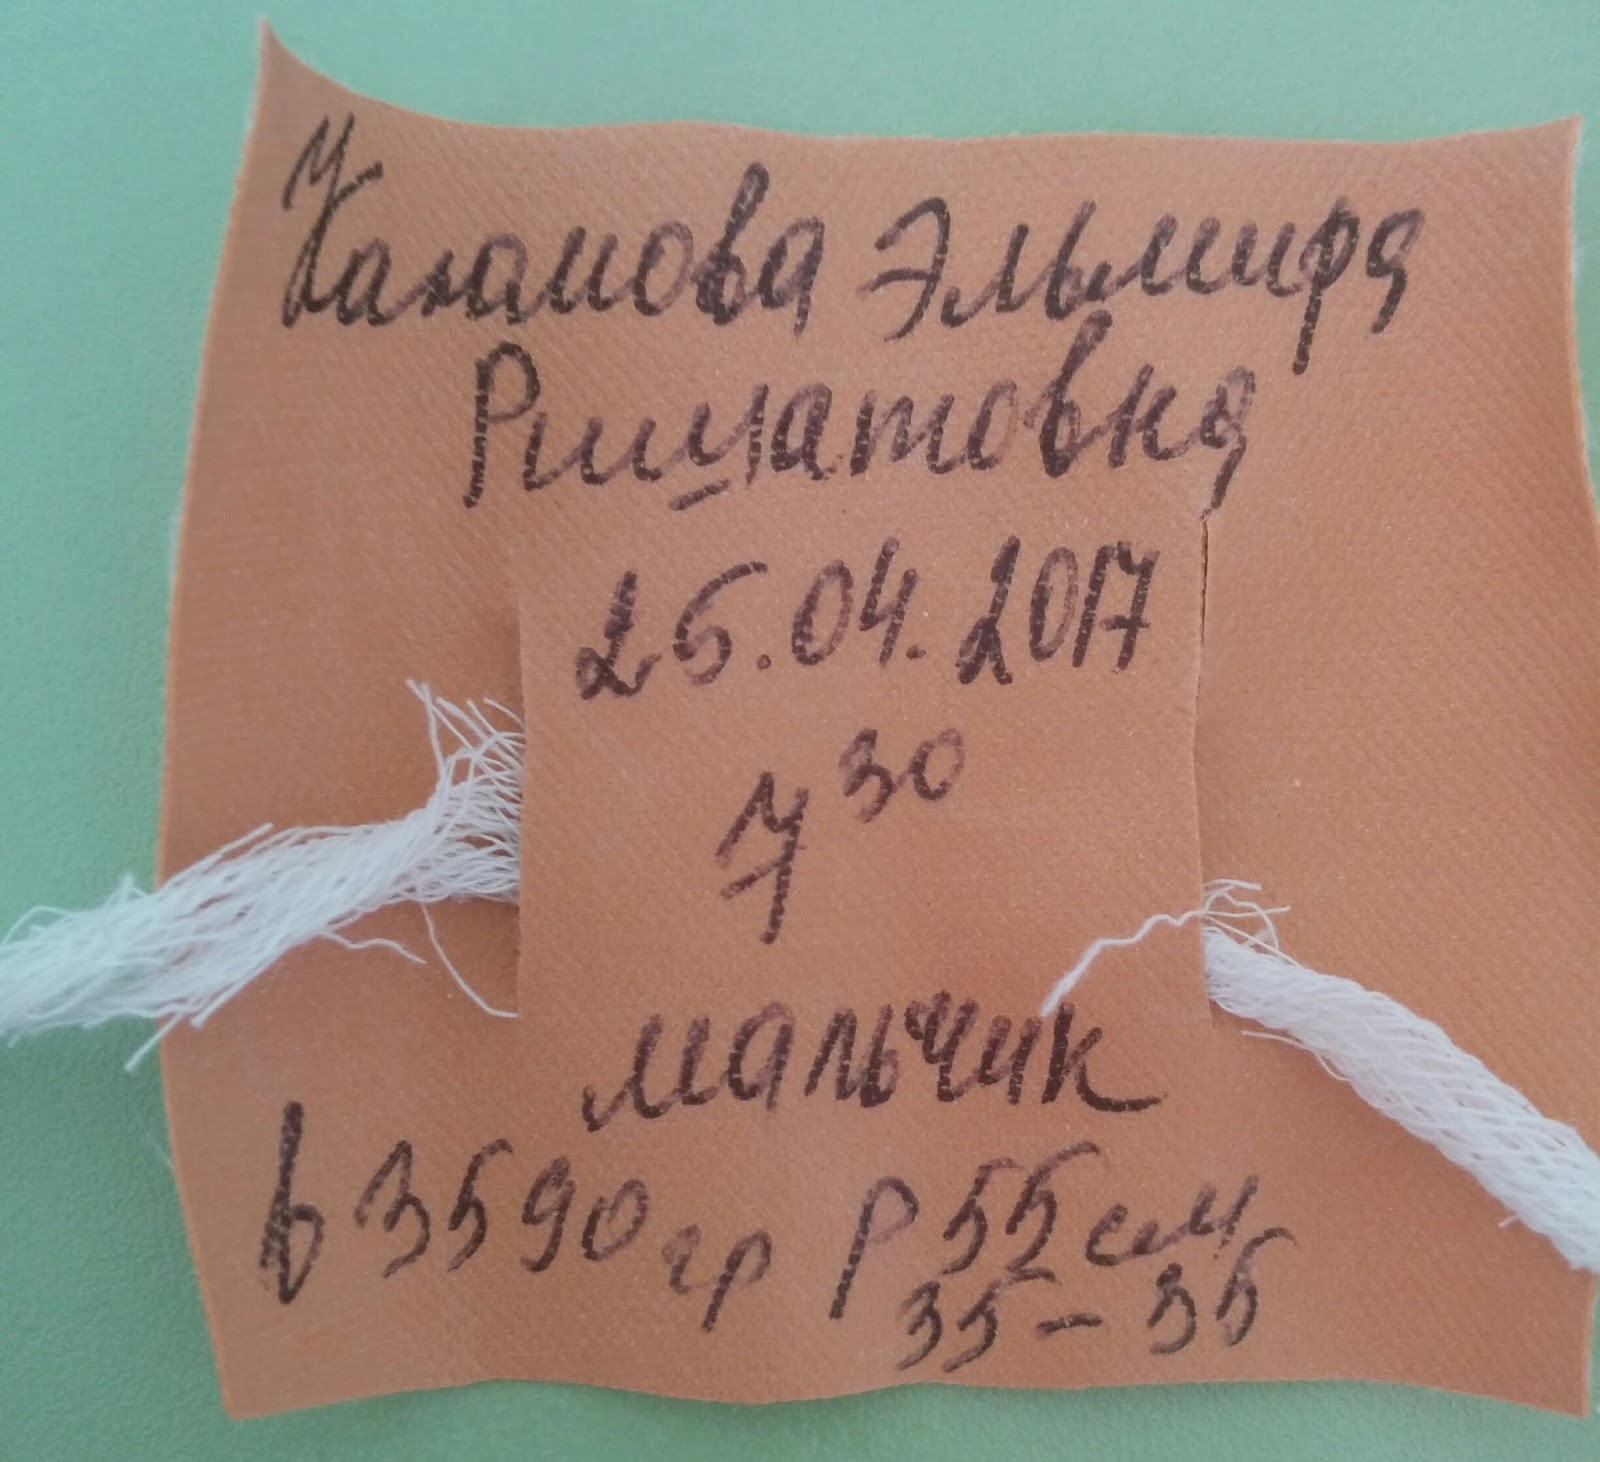 Эльмира
Ришатовна
25.04.2017
7 30
мальчик
в 3590 гр р 55 см
35 - 35